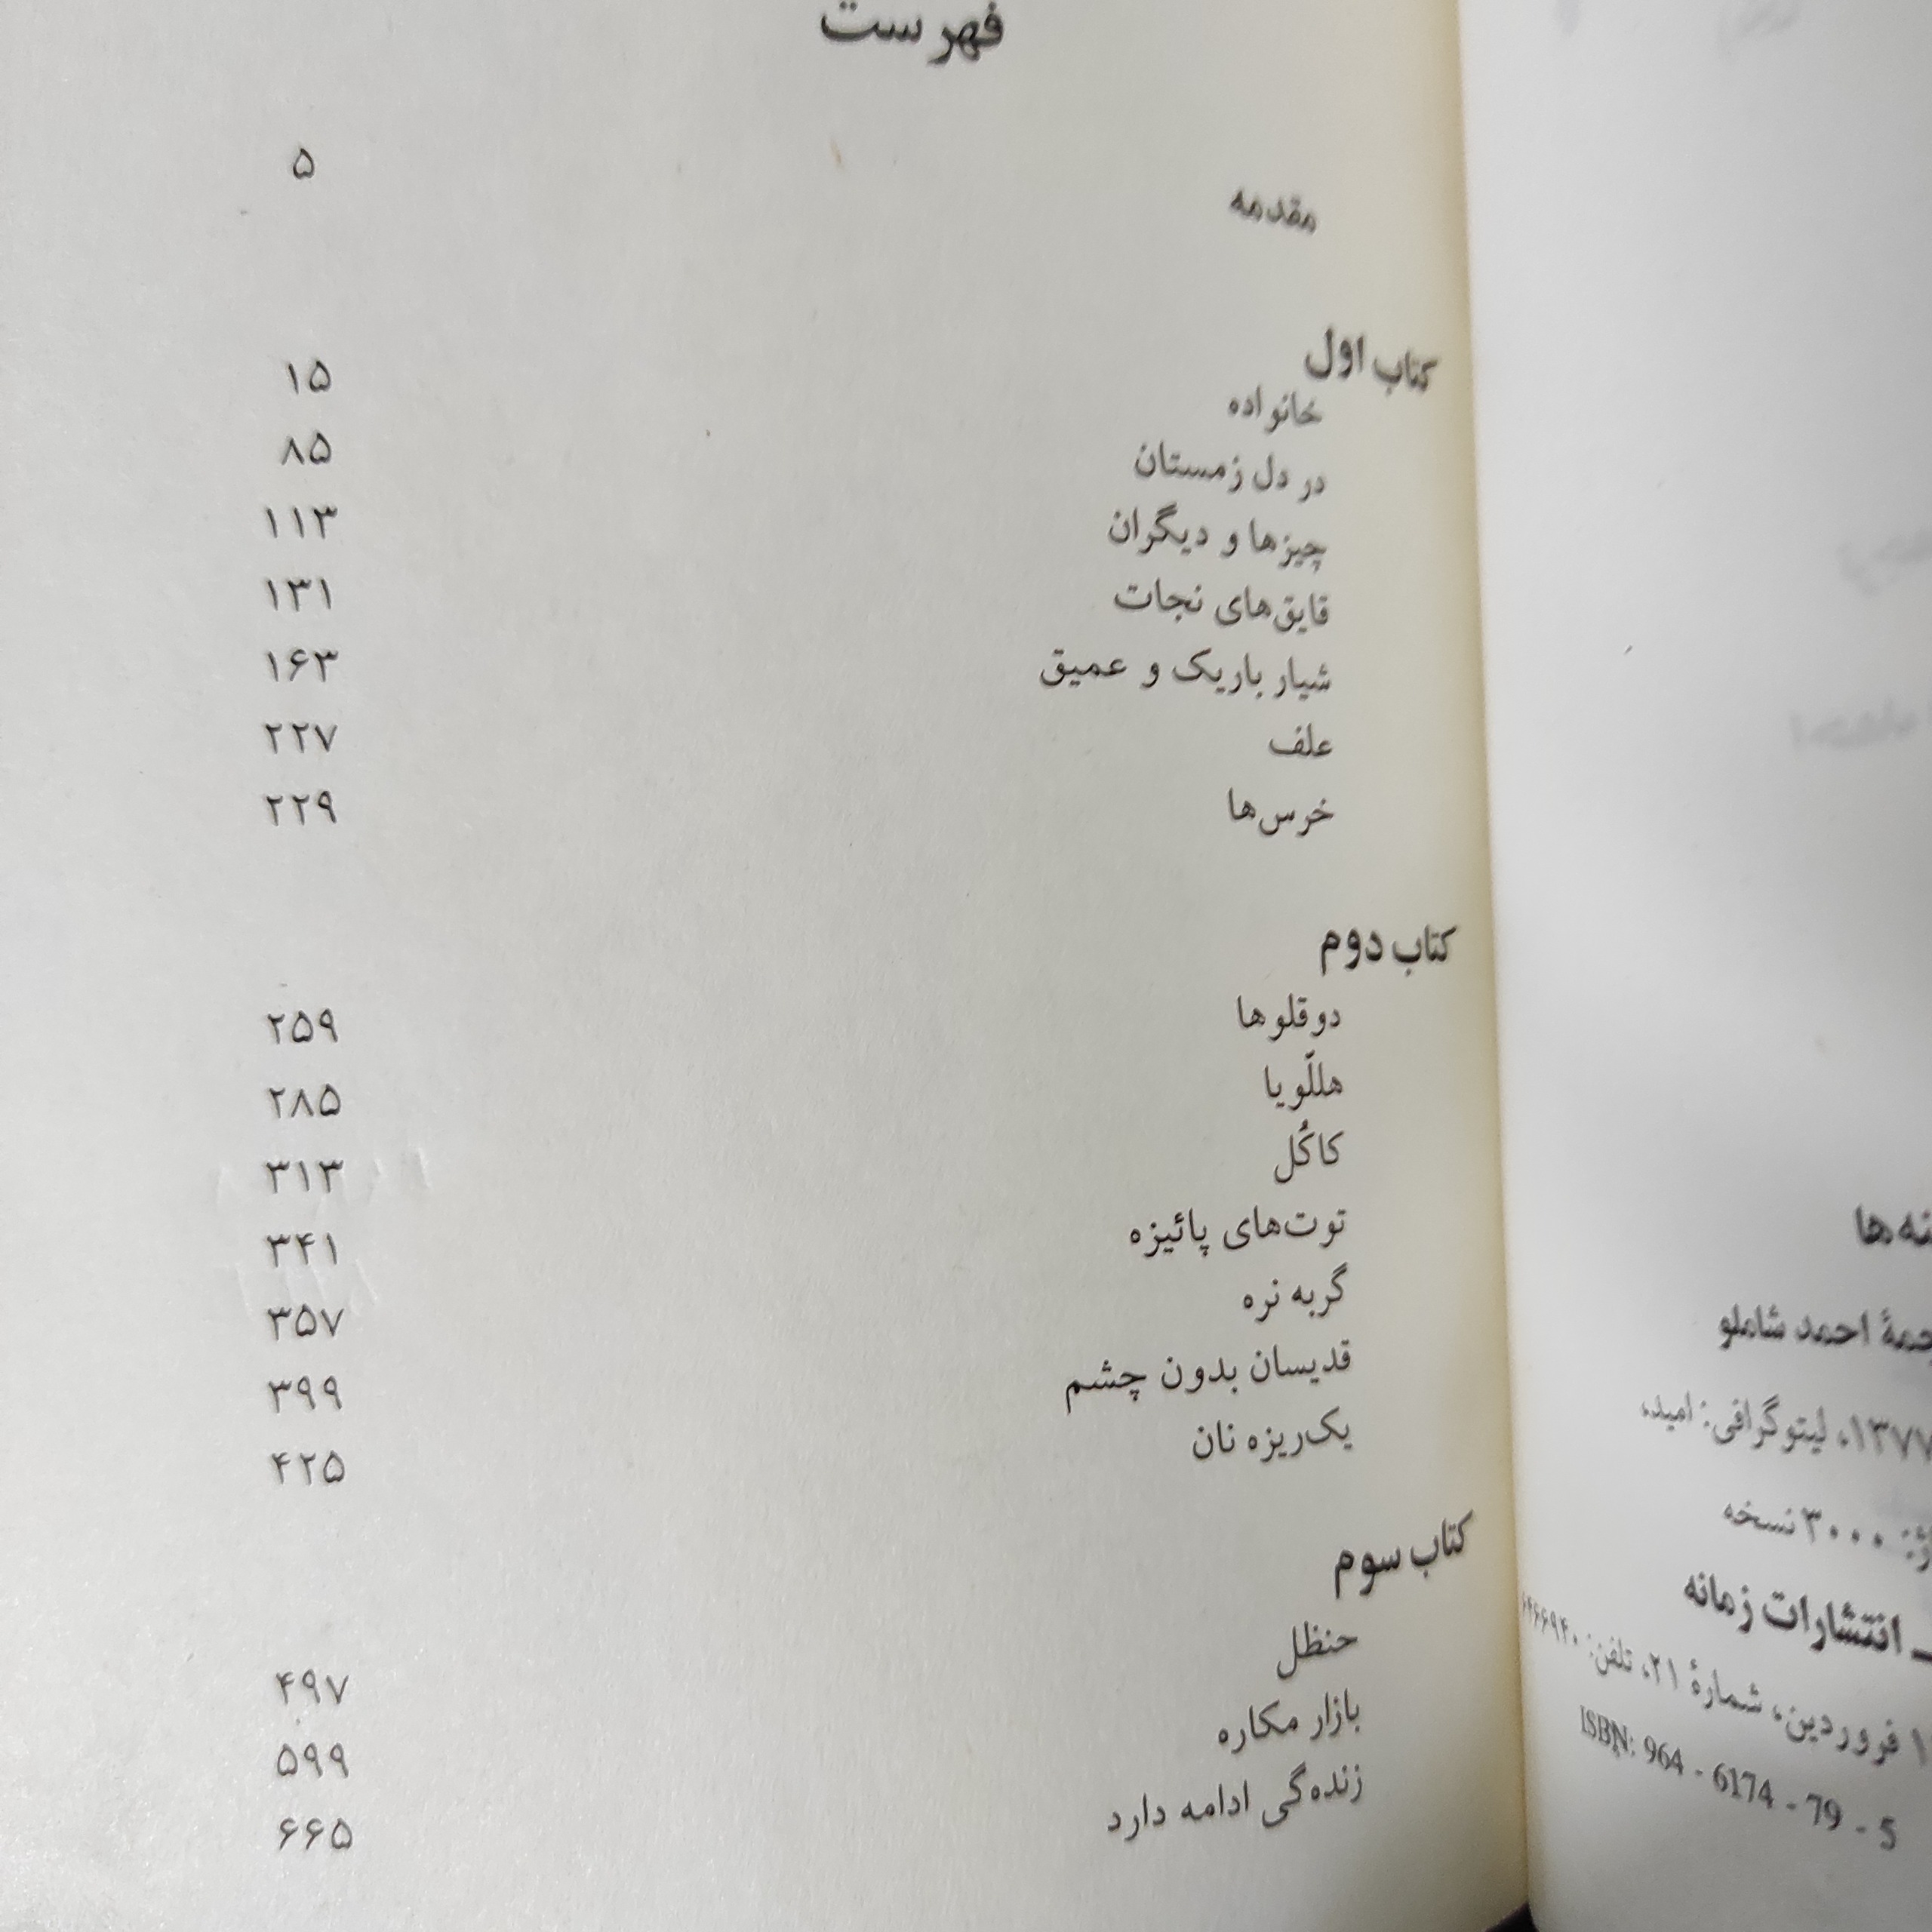 فهرست
مقدمه ۵
کتاب اول
خانواده ۱۵
در دل زمستان ۸۵
چیزها و دیگران ۱۱۳
قایق‌های نجات ۱۳۱
شیار باریک و عمیق ۱۶۳
علف ۲۲۷
خرس‌ها ۲۲۹
کتاب دوم
دوقلوها ۲۵۹
هللّویا ۲۸۵
کاکُل ۳۱۳
توت‌های پائیزه ۳۴۱
گربه نره ۳۵۷
قدیسان بدون چشم ۳۹۹
یک‌ریزه نان ۴۲۵
کتاب سوم
حنظل ۴۹۷
بازار مکاره ۵۹۹
زنده‌گی ادامه دارد ۶۶۵
احمد شاملو
۱۳۷۷، لیتوگرافی: امید،
۳۰۰۰ نسخه
انتشارات زمانه
فروردین، شمارهٔ ۲۱، تلفن:
ISBN: 964 - 6174 - 79 - 5